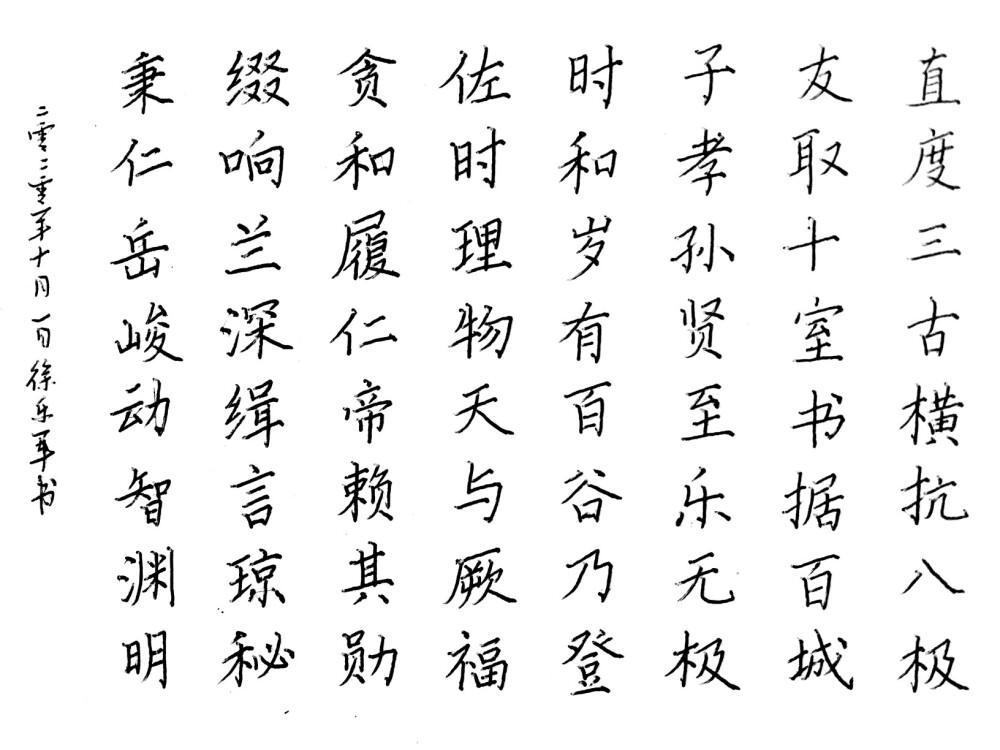 直度三古横抗八极
友取十室书据百城
子孝孙贤至乐无极
时和岁有百谷乃登
佐时理物天与厥福
贪和履仁帝赖其勋
缀响兰深缉言琼秘
秉仁岳峻动智渊明
二零二零年十月一日徐乐军书